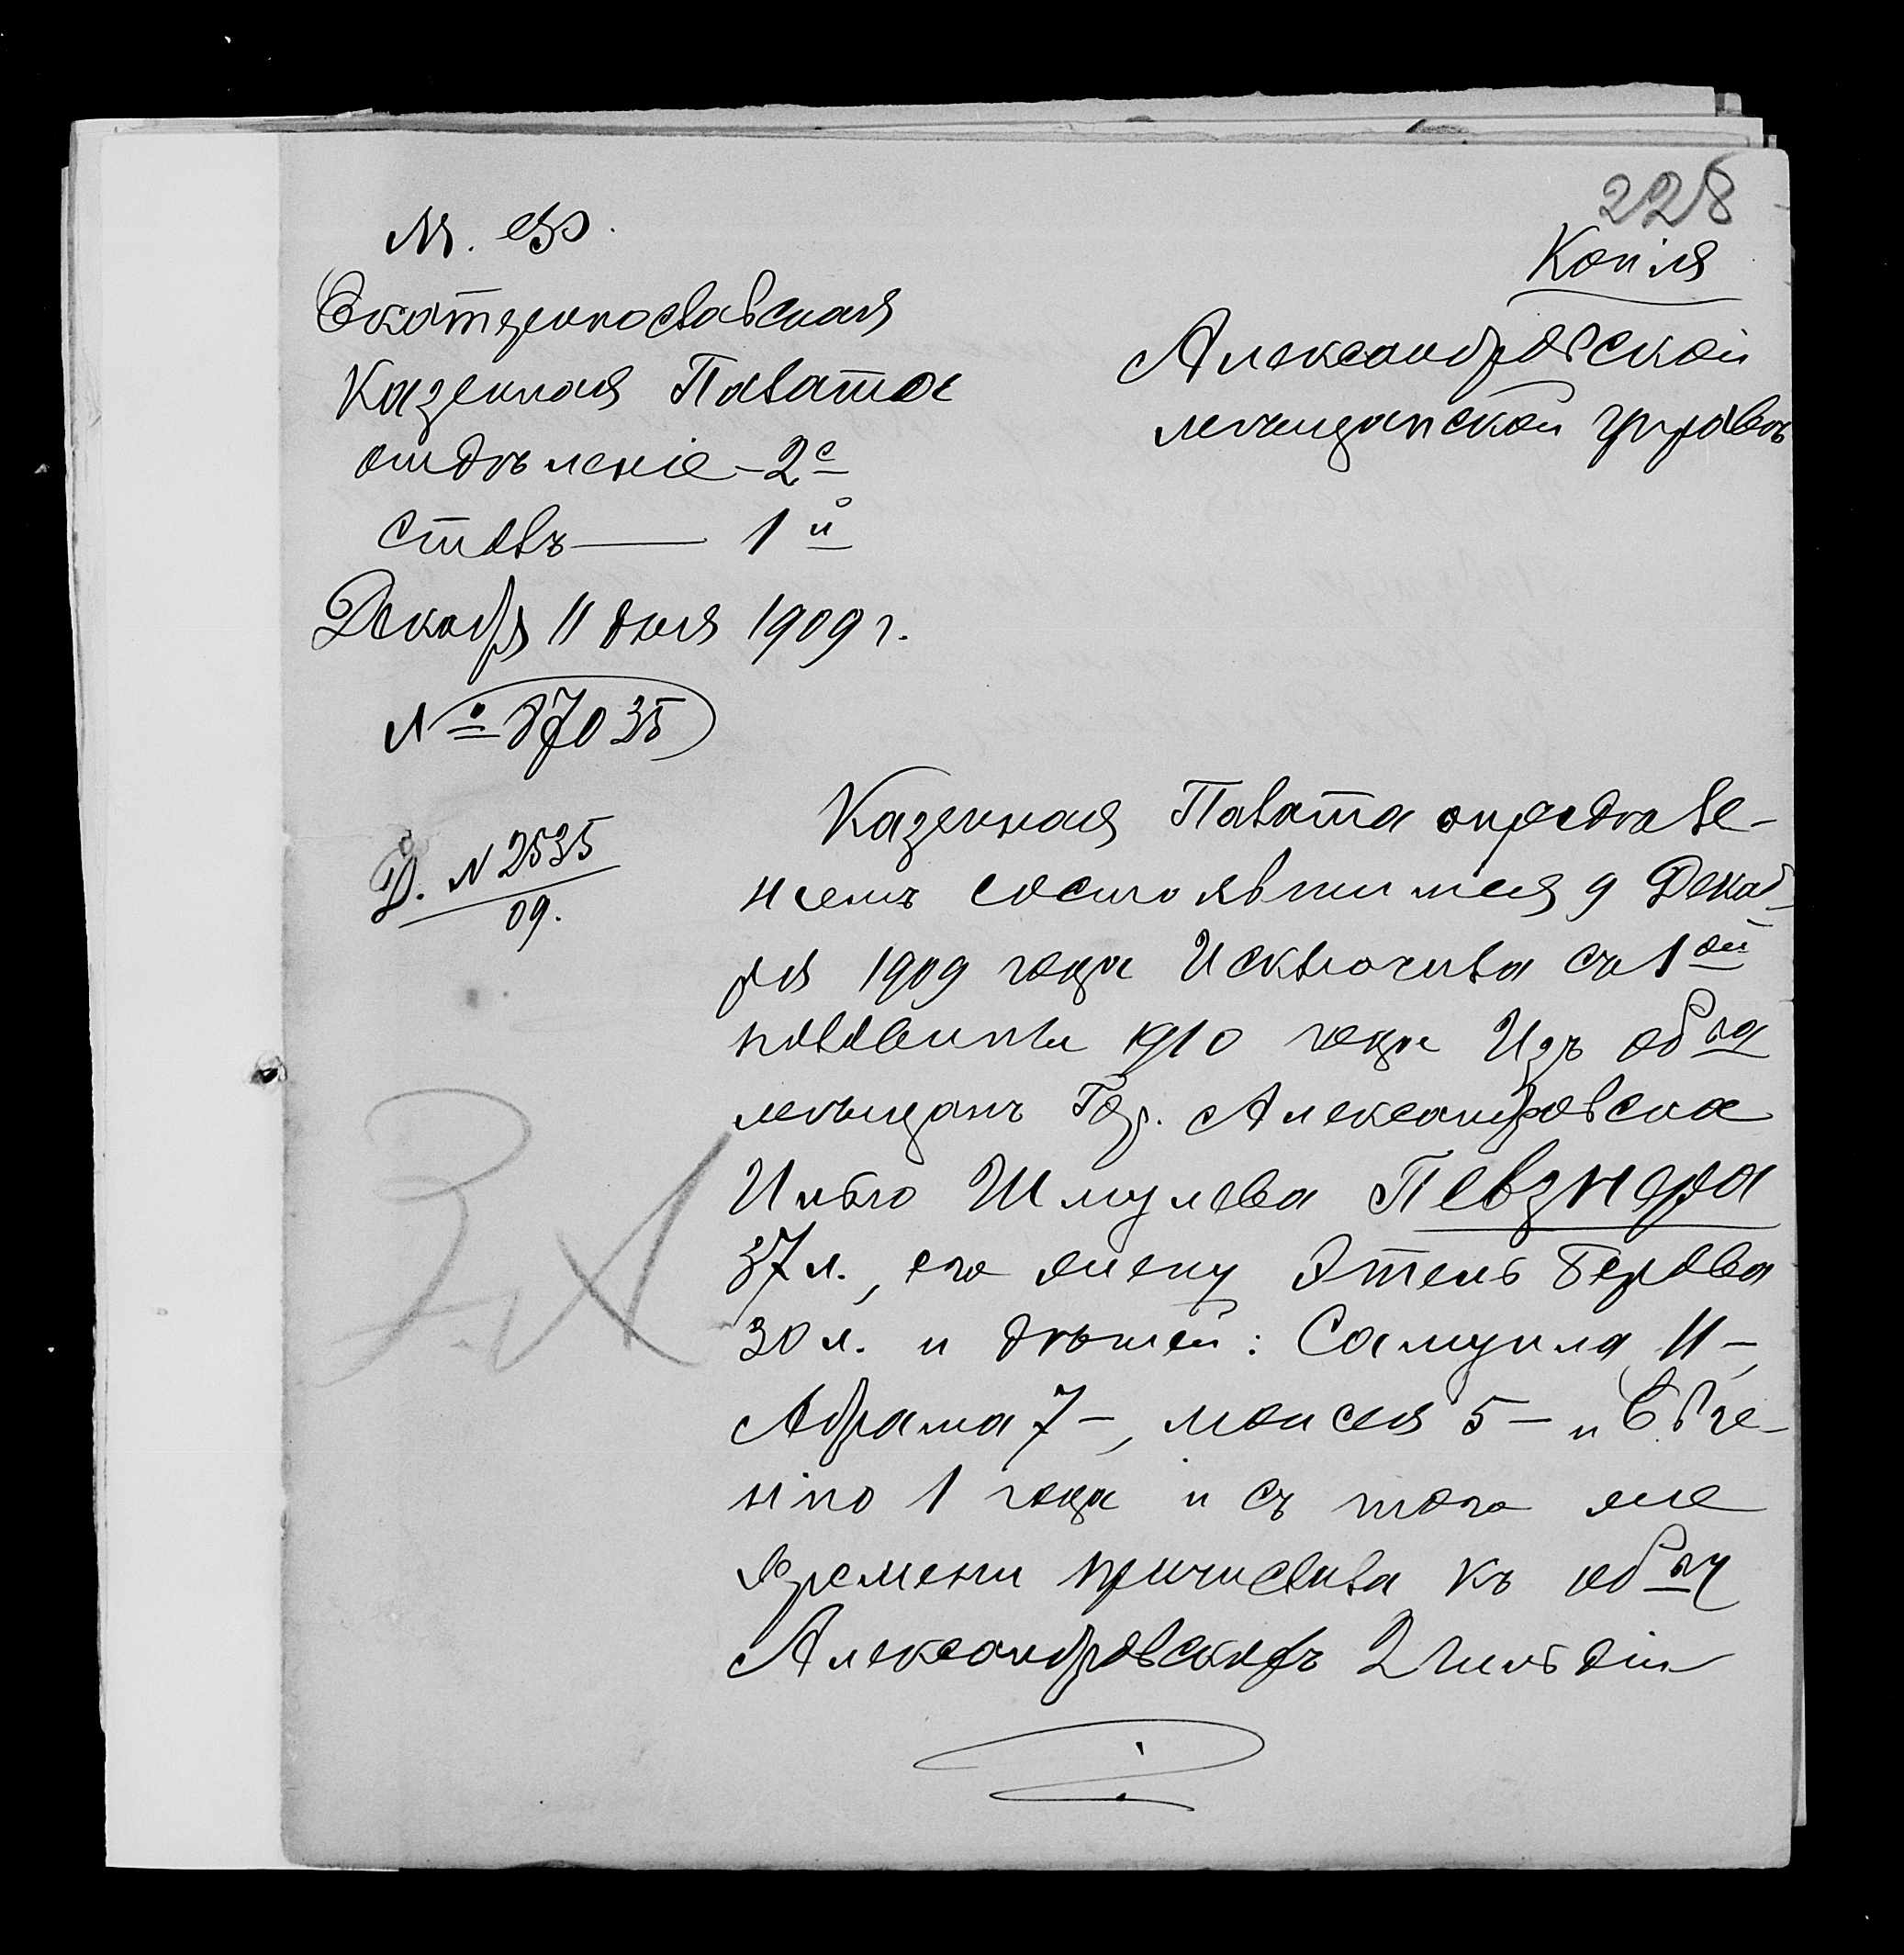 228
Копія
М. Ф.
Екатеринославская
Казенная Палата
отдѣленіе – 2е
Столъ — 1й
Декабря 11 дня 1909 г.
№ 87035
Д. № 2535
09.
Александровской
мѣщанской управѣ
Казенная Палата опредѣле-
ніемъ состоявшимся 9 Декаб-
ря 1909 года Исключила съ 1ой
половины 1910 года Изъ обва
мѣщанъ Гор. Александровска
Илью Шмулева Певзнера
37 л., его жену Этель Берова
30 л. и дѣтей: Самуила 11 –,
Абрама 7 –, Моисея 5 – и Евге-
нію 1 года и съ того же
времени причислила къ обву
Александровскихъ 2 гильдіи
З. А